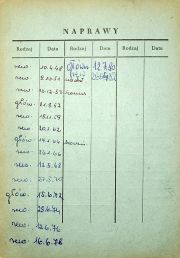 NAPRAWY
Rodzaj Data Rodzaj Data Rodzaj Data
rew. 10.4.48 główna 12.7.80
rew. 8.10.51
rew. 10.12.53
główn. 21.8.57
rew. 18.11.59
rew. 20.1.62
główn. 14.1.64
rew. 24.1.66
rew. 12.5.68
rew. 27.5.70
główn. 15.6.72
rew. 29.6.74
rew. 12.6.76
rew. 16.6.78